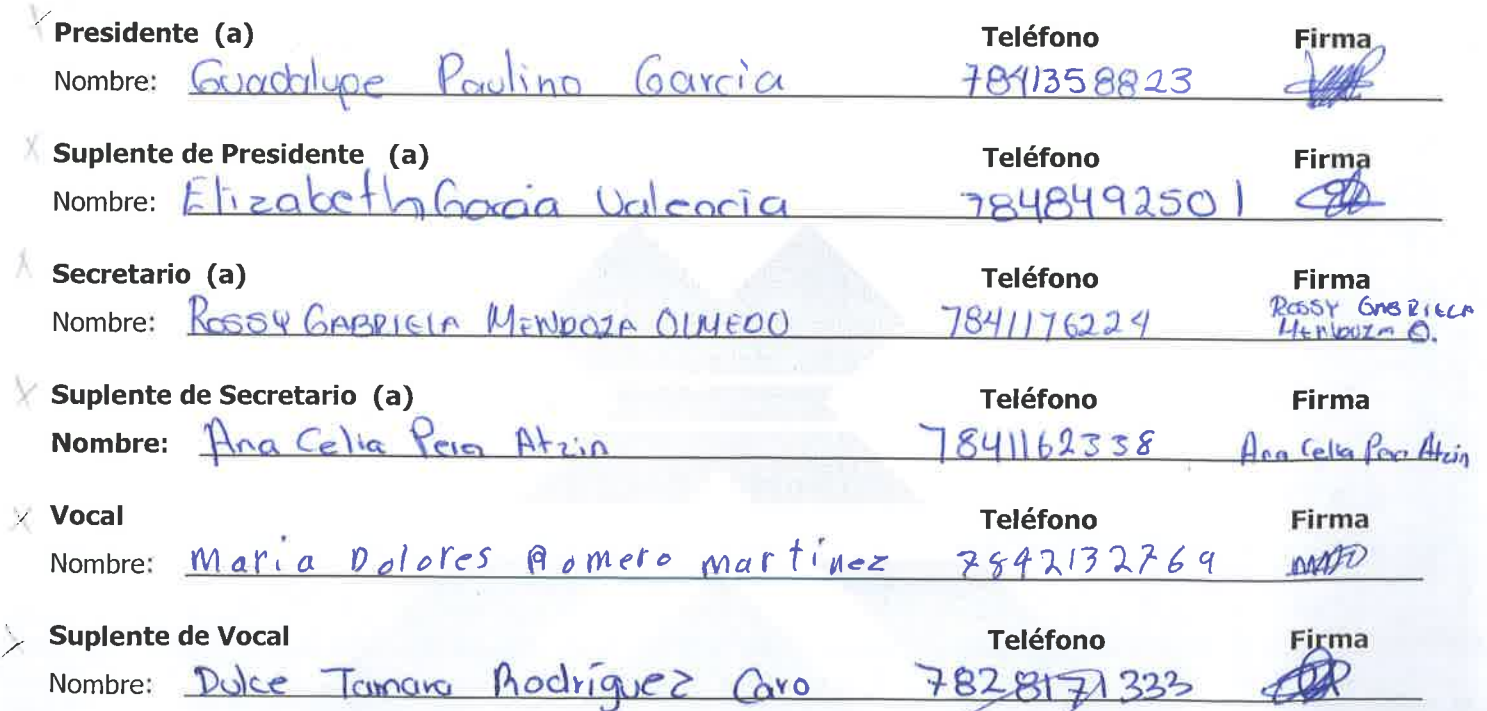 Presidente (a) Teléfono Firma
Nombre: Guadalupe Paulino Garcia 7841358823
Suplente de Presidente (a) Teléfono Firma
Nombre: Elizabeth Garcia Valencia 7848492501
Secretario (a) Teléfono Firma
Nombre: ROSSY GABRIELA MENDOZA OLMEDO 7841176224 ROSSY GABRIELA
MENDOZA O.
Suplente de Secretario (a) Teléfono Firma
Nombre: Ana Celia Atzin 7841162338 Ana Celia Atzin
Vocal Teléfono Firma
Nombre: Maria Dolores Romero martínez 7842132769
Suplente de Vocal Teléfono Firma
Nombre: Dulce Tamara Rodríguez Caro 7828171333